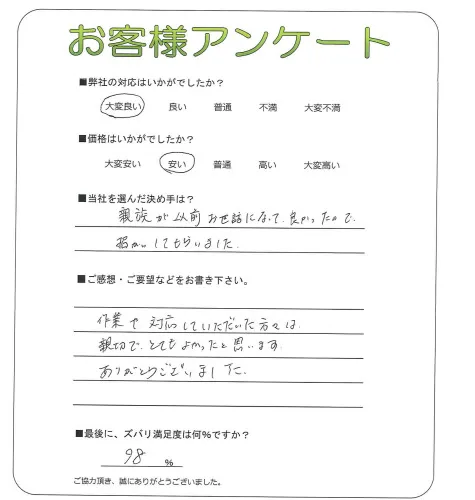 お客様アンケート
■弊社の対応はいかがでしたか？
大変良い 良い 普通 不満 大変不満
■価格はいかがでしたか？
大変安い 安い 普通 高い 大変高い
■当社を選んだ決め手は？
親族が以前お世話になって、良かったので、
してもらいました。
■ご感想・ご要望などをお書き下さい。
作業や対応していただいた方々は、
親切で、とてもよかったと思います。
ありがとうございました。
■最後に、ズバリ満足度は何％ですか？
98 ％
ご協力頂き、誠にありがとうございました。